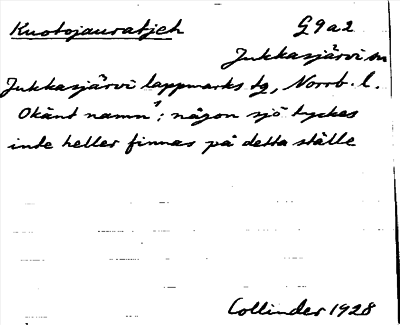 Kuotojauratjeh G9a2
Jukkasjärvi sn
Jukkasjärvi lappmarks tg, Norrb. l.
Okänt namn; någon sjö tyckes
inte heller finnas på detta ställe
Collinder 1928